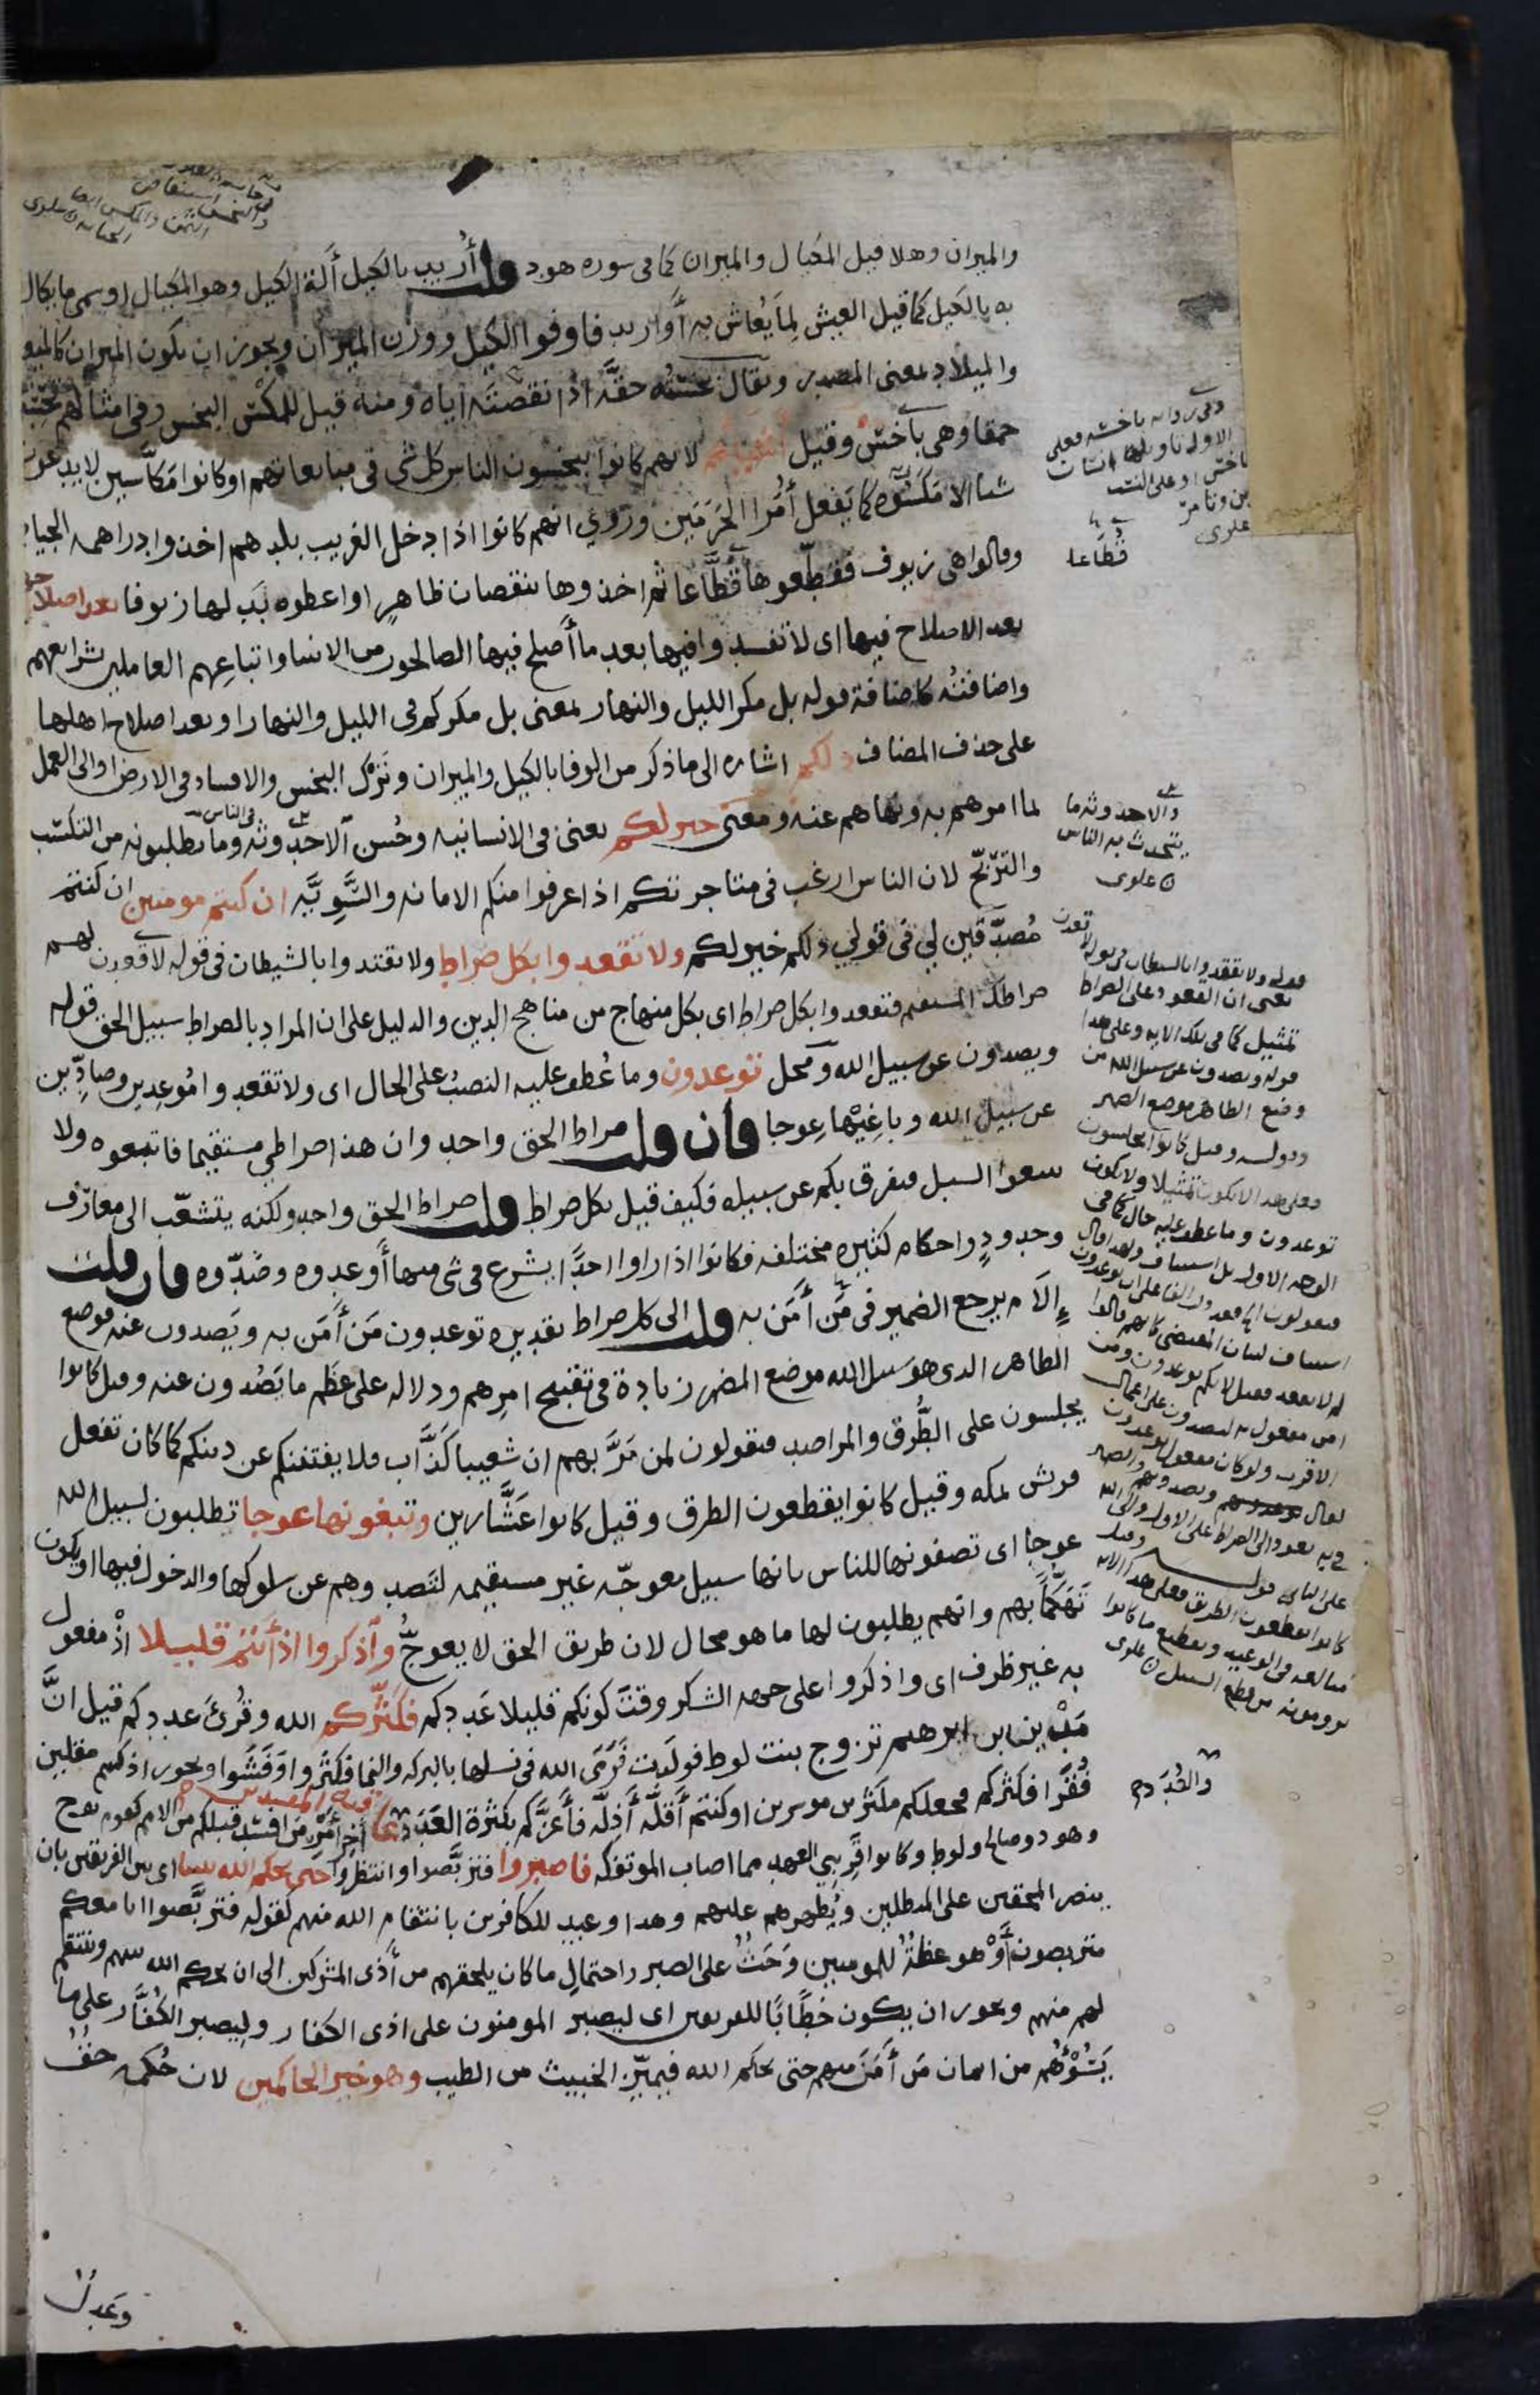 والميزان وهلا قيل المكيال والميزان كما في سوره هود قلت أريد بالكيل ألة الكيل وهو المكيال اوسمى ما يكال
به بالكيل كما قيل العيش لما يُعاش به أو اريد فاوفوا الكيل ووزن الميزان ويجوز ان يكون الميزان كالميعاد
والميلاد بمعنى المصدر ويقال بخسته حقه اذا نقصته اياه ومنه قيل للمكس البخس وفى امثالهم تحسبها
حمقا وهى باخس وقيل أشياءهم لانهم كانوا يبخسون الناس كل شى فى مبايعاتهم او كانوا مكاسين لا يدعون
شيا الا مكسوه كما يفعل أمرا الحرمين وروي انهم كانوا اذا دخل الغريب بلدهم اخذوا دراهمه الجياد
وقالوا هى زيوف فقطعوها قطاعا ثم اخذوها بنقصان ظاهر او اعطوه بدلها زيوفا بعد اصلاحها
بعد الاصلاح فيها اى لا تفسدوا فيها بعد ما أصلح فيها الصالحون من الانبيا واتباعهم العاملين بشرايعهم
واضافته كاضافة قوله بل مكر الليل والنهار بمعنى بل مكركم فى الليل والنهار او بعد اصلاح اهلها
على حذف المضاف ذلكم اشاره الى ما ذكر من الوفا بالكيل والميزان وترك البخس والافساد فى الارض او الى العمل
لما امرهم به ونهاهم عنه ومعنى خير لكم يعنى فى الانسانيه وحسن الاحدوثه وما يطلبونه من التكسب
والتربح لان الناس ارغب فى متاجرتكم اذا عرفوا منكم الامانه والسوية ان كنتم مومنين ان كنتم
مُصدّقين لي فى قولي ذلكم خير لكم ولا تقعدوا بكل صراط ولا تقتدوا بالشيطان فى قوله لاقعدن لهم
صراطك المستقيم فتقعدوا بكل صراط اى بكل منهاج من مناهج الدين والدليل على ان المراد بالصراط سبيل الحق قوله
ويصدون عن سبيل الله ومحل توعدون وما عُطف عليه النصبُ على الحال اى ولا تقعدوا مُوعِدين وصادّين
عن سبيل الله وباغيها عوجا فان قلت صراط الحق واحد وان هذا صراطي مستقيما فاتبعوه ولا
تتبعوا السبل فتفرق بكم عن سبيله فكيف قيل بكل صراط قلت صراط الحق واحد ولكنه يتشعّب الى معارف
وحدودٍ واحكام كثيره مختلفه فكانوا اذا راوا احدًا يشرع فى شى منها أوعدوه وصدّوه فان قلت
إلام يرجع الضمير فى مَن أمَن به قلت الى كل صراط تقديره توعدون مَن أمَن به ويَصدون عنه فوضع
الظاهر الذى هو سبيل الله موضع المضمر زيادة فى تقبيح امرهم ودلاله على عظم ما يَصُدون عنه وقيل كانوا
يجلسون على الطُّرق والمراصد فيقولون لمن مَرَّ بهم ان شعيبا كذَّاب فلا يفتننكم عن دينكم كما كان تفعل
قريش بمكه وقيل كانوا يقطعون الطرق وقيل كانوا عَشَّارين وتبغونها عوجا تطلبون لسبيل الله
عوجا اى تصفونها للناس بانها سبيل معوجّه غير مستقيمه لتصدوهم عن سلوكها والدخول فيها او يكون
تَهَكُّمًا بهم وانهم يطلبون لها ما هو محال لان طريق الحق لا يعوجُّ وأذكروا اذ أنتم قليلا اذْ مفعول
به غير ظرف اى واذكروا على جهه الشكر وقتَ كونكم قليلا عَددكم فكثّركم الله وقُرئَ عددكم قيل انَّ
مَدْين ابن ابرهيم تزوج بنت لوط فولَدت فَرَمَى الله فى نسلها بالبركه والنما فكثروا وَفَشَوا ويجوز اذ كنتم مقلين
فُقرَا فكثركم فجعلكم مكثرين موسرين او كنتم أقلَّه أذلّه فأعزَّكم بكثرة العَدَد والعُدَد عاقبه المفسدين أخِر أمْر مَن افسد قبلكم من الامم كقوم نوح
وهود وصالح ولوط وكانوا قريبي العهد مما اصاب الموتفكه فاصبروا فتربَّصوا وانتظروا حتى يحكم الله بيننا اى بين الفريقين بان
ينصر المحقين على المبطلين ويُظهرهم عليهم وهدا وعيد للكافرين بانتقام الله منهم كقوله فتربَّصوا انا معكم
متربصون أوْ هو عظةٌ للمومنين وَحَثٌّ على الصبر واحتمالِ ما كان يلحقهم من أَذَى المشركين الى ان يحكم الله بينهم وينتقم
لهم منهم ويجوز ان يكون خطَابًا للفريقين اى ليصبر المومنون على اذى الكفار وليصبر الكُفَّار على ما
يَسُوْءُهُم من ايمان مَن أمَنَ منهم حتى يحكم الله فيميّز الخبيث من الطيب وهو خير الحاكمين لان حُكمه حَقٌّ
وعَدلٌ
قطّاعا
والاحدوثه ما
يتحدث به الناس
علوى
قوله ولا تقتدوا بالشيطان فى قوله لاقعدن
يعنى ان القعود على الصراط
تمثيل كما فى تلك الايه وعلى هدا
قوله وتصدون عن سبيل الله من
وضع الظاهر موضع المضمر
وقوله وقيل كانوا يجلسون
فعلى هدا لا يكون تمثيلا ولا يكون
توعدون وما عطف عليه حال كما فى
الوجه الاول بل استيناف
والعُدَد صح